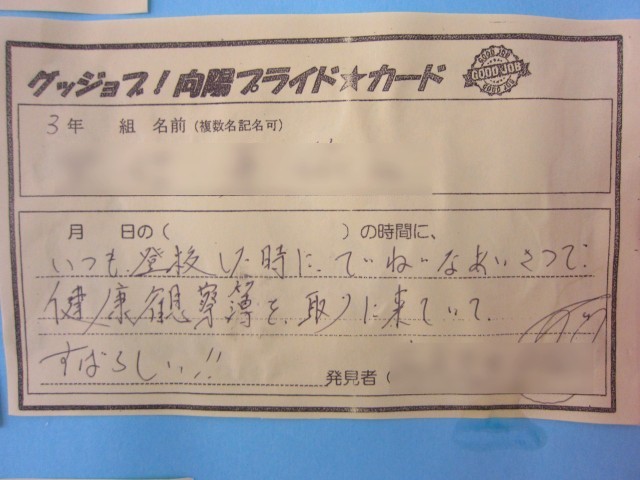 グッジョブ！向陽プライド★カード
GOOD JOB
GOOD JOB
3年　組 名前（複数名記名可）
月　日の（　）の時間に、
いつも登校した時に、ていねいなあいさつで
健康観察簿を取りに来ていて
すばらしい!!
発見者（